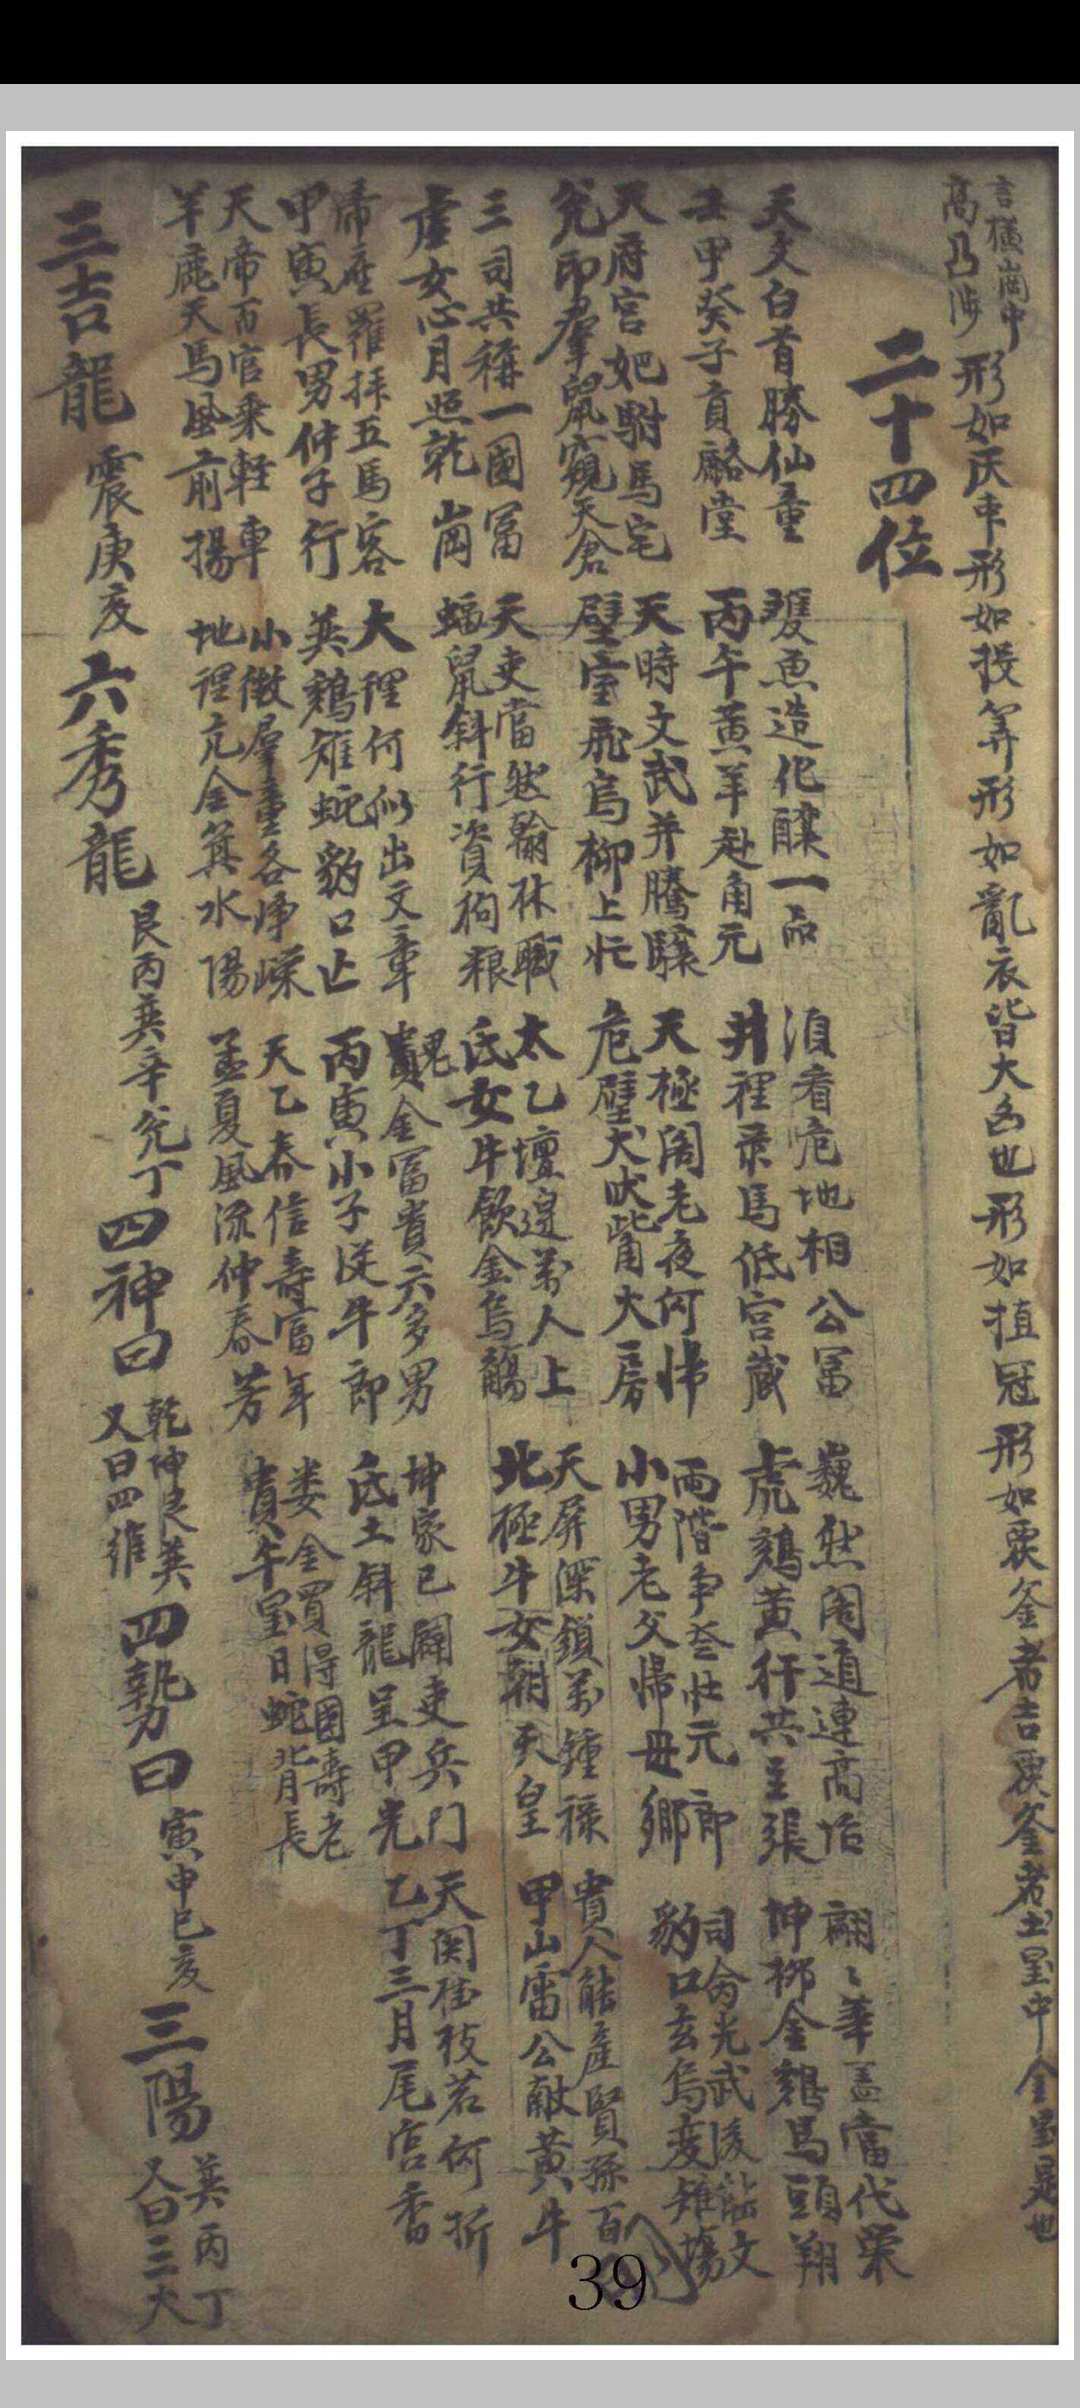 言橫崗中
高凸沙
形如灰中形如投筭形如亂衣皆大凶也形如植冠形如覆釜者吉覆釜者土星中金星是也
二十四位
天文白首勝仙童
壬甲癸子貢麟堂
雙魚造化釀一品
丙午黃羊赴角元
須看危地相公冨
井裡彔馬低宮藏
巍然閣道連高
虎鷄黃行共主張
翩〻華盖當代榮
坤柳金鷄馬頭翔
天府宮妃駙馬宅
兊印羣鼠窺天倉
天時文武并騰驤
壁室飛烏柳上忙
天極閣老夜何㱕
危壁犬吠觜大房
兩階爭叄壯元郎
小男老父㱕毋鄉
司命光武後能文
豹口玄烏変雉塲
三司共稱一國冨
虛女心月照乾崗
天吏當然翰林職
蝠鼠斜行資狗粮
太乙壇邉萬人上
氐女牛飮金烏觴
天屏深鎖萬鍾祿
北極牛女朝天皇
貴人能產賢孫百
甲山雷公獻黃牛
帝座羅拜五馬客
甲寅長男仲子行
大裡何似出文章
英鷄雉蛇豹口亡
貴金冨貴六多男
丙寅小子從牛郎
坤家已闢吏兵门
氐土斜龍呈甲光
天関桂枝若何折
乙丁三月尾宮香
天帝百官乘軽車
羊鹿天馬風前揚
小微群童各崢嶸
地裡亢金箕水陽
天乙春信壽富年
孟夏風流仲春芳
娄金買得國壽老
貴午星日蛇背長
三吉龍
震庚亥
六秀龍
艮丙巽辛兊丁
四神曰
乾坤艮巽
又曰四維
四勢曰
寅申巳亥
三陽
巽丙丁
又曰三大
39